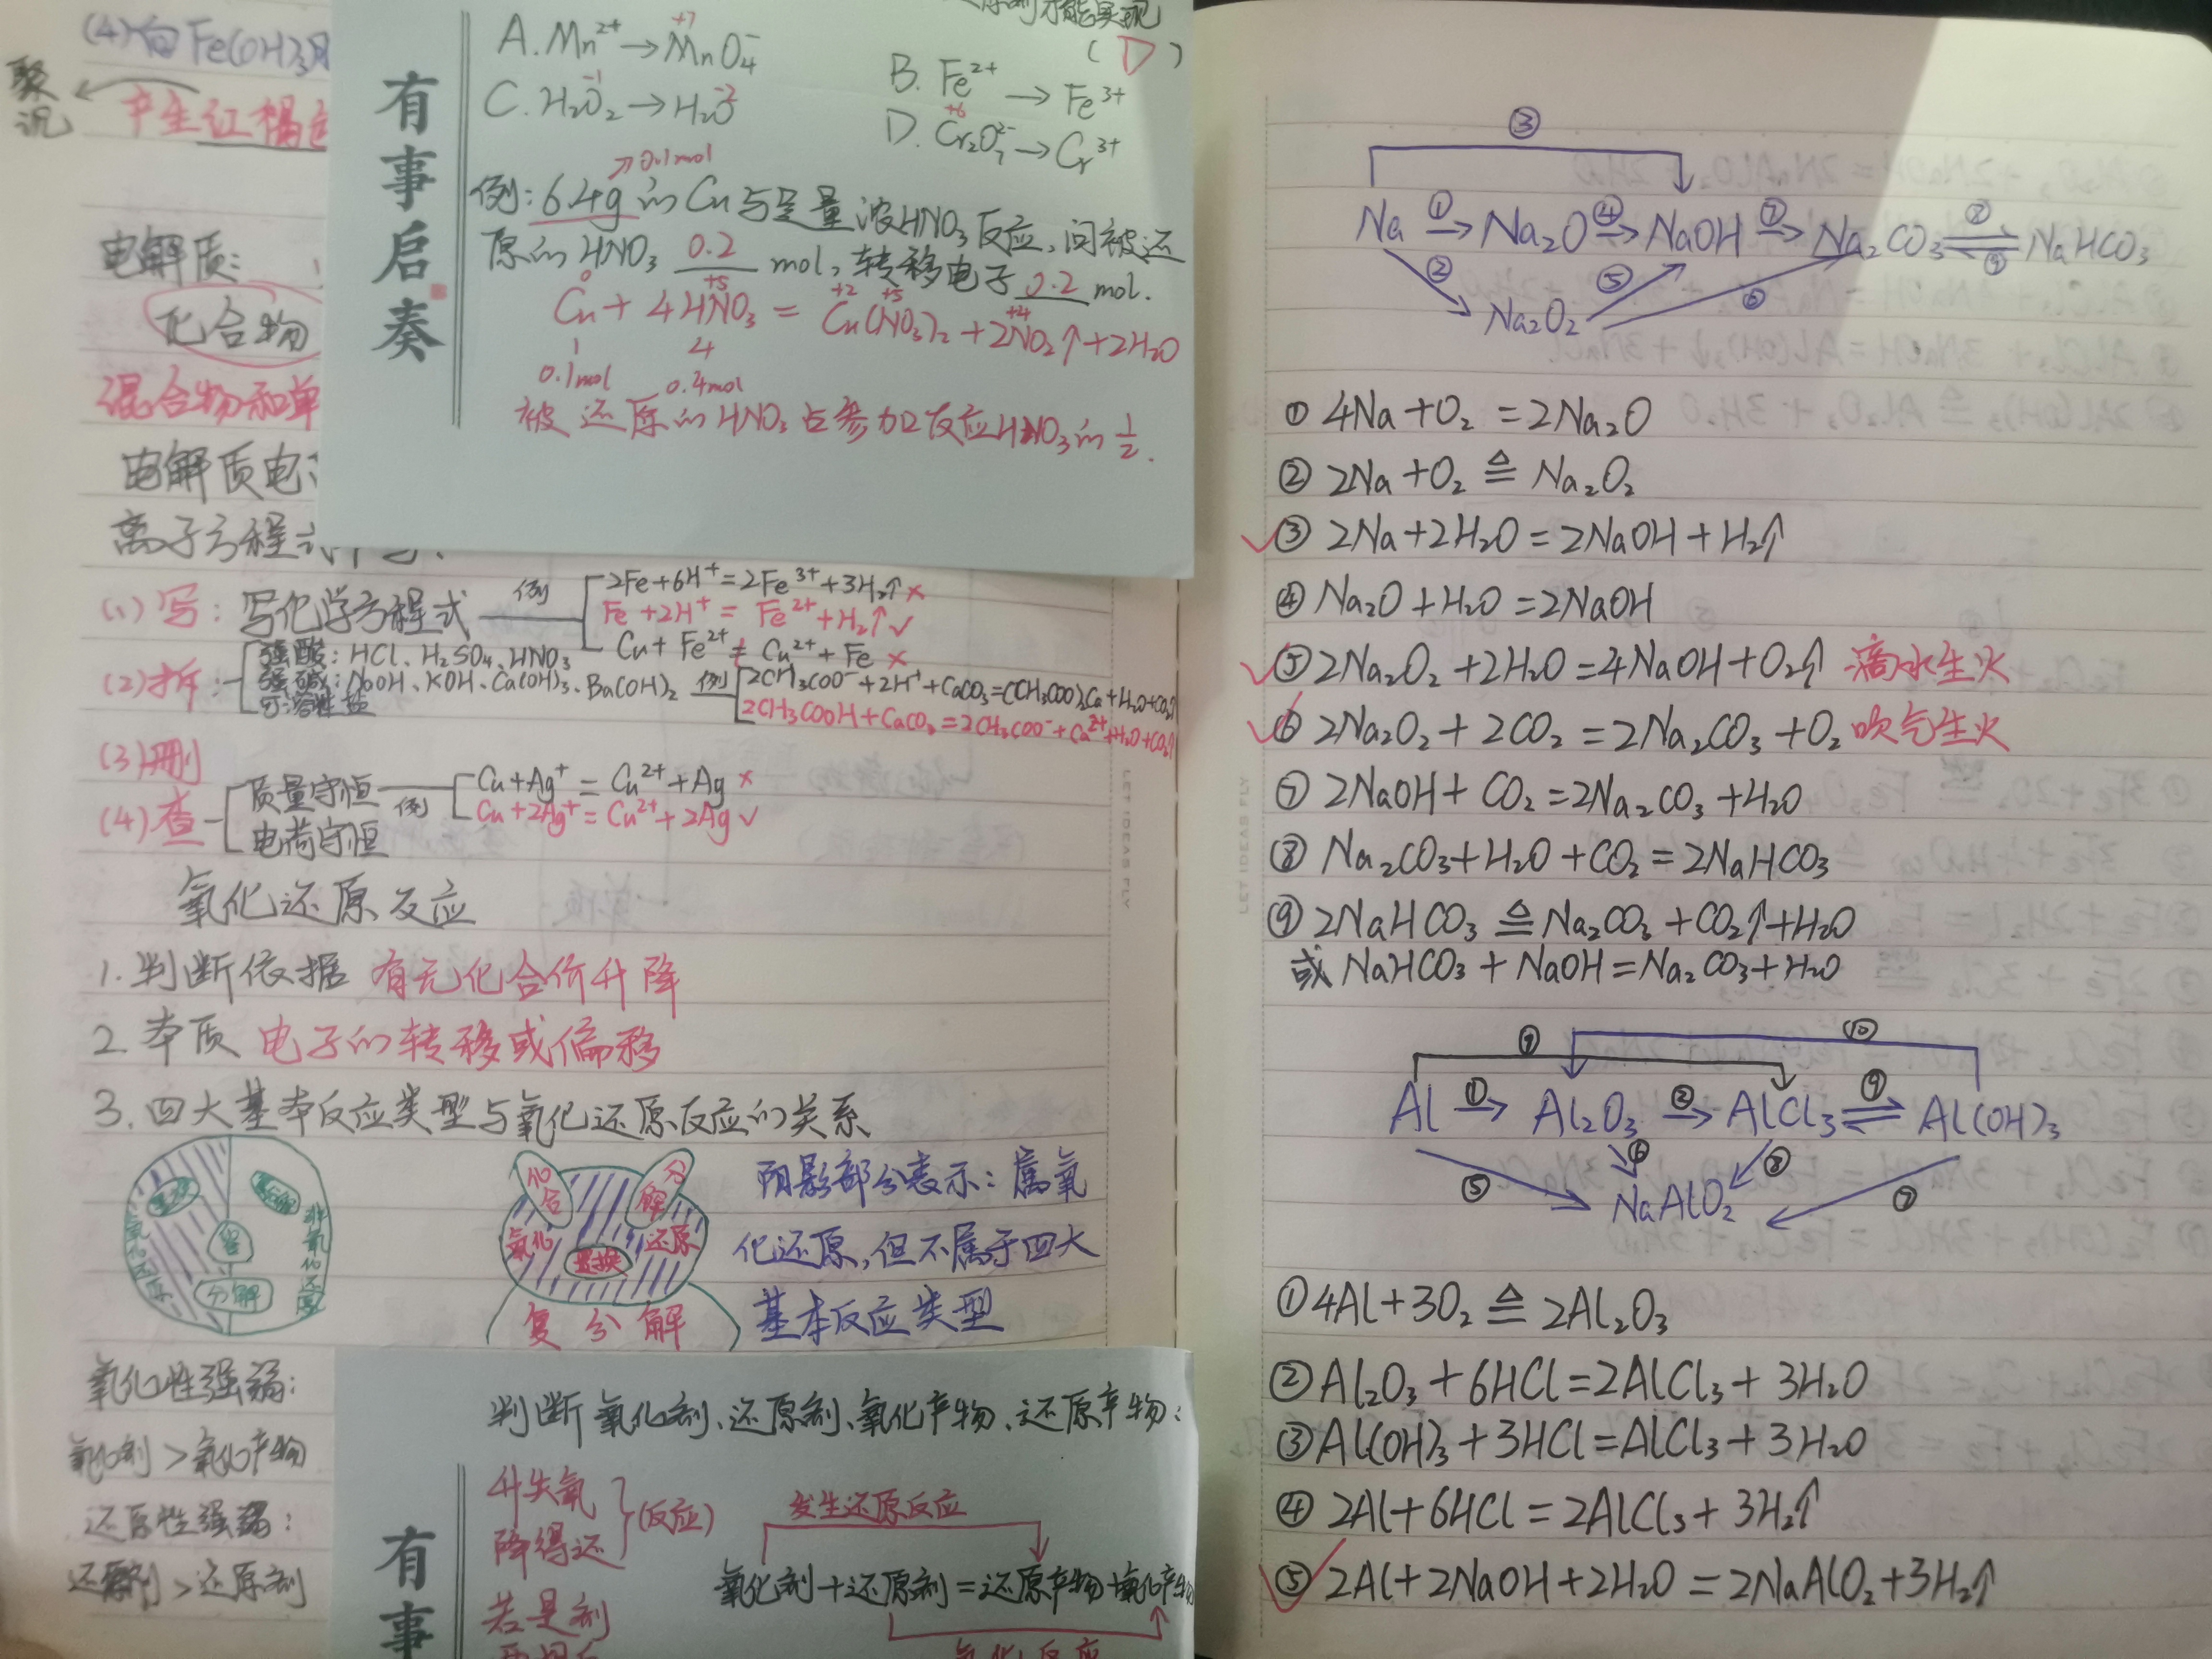 (4)向Fe(OH)3
聚沉
产生红褐色
电解质:
化合物
混合物和单
电解质电
离子方程式
有事启奏
原剂才能实现
A. Mn²⁺→MnO₄⁻ +7
( D )
B. Fe²⁺→Fe³⁺
C. H₂O₂→H₂O -1 -2
D. Cr₂O₇²⁻→Cr³⁺ +6
→0.1mol
例:6.4g的Cu与足量浓HNO₃反应,问被还
原的HNO₃ 0.2 mol,转移电子 0.2 mol.
0 +5 +2 +5 +4
Cu + 4HNO₃ = Cu(NO₃)₂ + 2NO₂↑ + 2H₂O
1 4
0.1mol 0.4mol
被还原的HNO₃占参加反应HNO₃的½.
(1)写:写化学方程式 例
2Fe+6H⁺=2Fe³⁺+3H₂↑ ×
Fe+2H⁺=Fe²⁺+H₂↑ √
Cu+Fe²⁺≠Cu²⁺+Fe ×
(2)拆:
强酸:HCl、H₂SO₄、HNO₃
强碱:NaOH、KOH、Ca(OH)₂、Ba(OH)₂ 例
可溶性盐
2CH₃COO⁻+2H⁺+CaCO₃=(CH₃COO)₂Ca+H₂O+CO₂↑
2CH₃COOH+CaCO₃=2CH₃COO⁻+Ca²⁺+H₂O+CO₂↑
(3)删
(4)查
质量守恒 例
电荷守恒
Cu+Ag⁺=Cu²⁺+Ag ×
Cu+2Ag⁺=Cu²⁺+2Ag √
氧化还原反应
1.判断依据 有无化合价升降
2.本质 电子的转移或偏移
3.四大基本反应类型与氧化还原反应的关系
氧化还原
置换
复分解
化合
分解
非氧化还原
化合
分解
氧化
还原
置换
复分解
阴影部分表示:属氧
化还原,但不属于四大
基本反应类型
氧化性强弱:
氧化剂>氧化产物
还原性强弱:
还原剂>还原剂
有事
判断氧化剂、还原剂、氧化产物、还原产物:
升失氧
降得还
(反应)
若是剂
发生还原反应
氧化剂+还原剂=还原产物+氧化产物
氧化反应
③
Na ①→ Na₂O ④→ NaOH ⑦→ Na₂CO₃ ⑧⇌⑨ NaHCO₃
② ⑤ ⑥
Na₂O₂
① 4Na+O₂=2Na₂O
② 2Na+O₂≜Na₂O₂
√③ 2Na+2H₂O=2NaOH+H₂↑
④ Na₂O+H₂O=2NaOH
√⑤ 2Na₂O₂+2H₂O=4NaOH+O₂↑ 滴水生火
√⑥ 2Na₂O₂+2CO₂=2Na₂CO₃+O₂ 吹气生火
⑦ 2NaOH+CO₂=2Na₂CO₃+H₂O
⑧ Na₂CO₃+H₂O+CO₂=2NaHCO₃
⑨ 2NaHCO₃≜Na₂CO₃+CO₂↑+H₂O
或 NaHCO₃+NaOH=Na₂CO₃+H₂O
⑨ ⑩
Al ①→ Al₂O₃ ②→ AlCl₃ ⑨⇌ Al(OH)₃
⑤ ⑥ ⑧ ⑦
NaAlO₂
① 4Al+3O₂≜2Al₂O₃
② Al₂O₃+6HCl=2AlCl₃+3H₂O
③ Al(OH)₃+3HCl=AlCl₃+3H₂O
④ 2Al+6HCl=2AlCl₃+3H₂↑
√⑤ 2Al+2NaOH+2H₂O=2NaAlO₂+3H₂↑